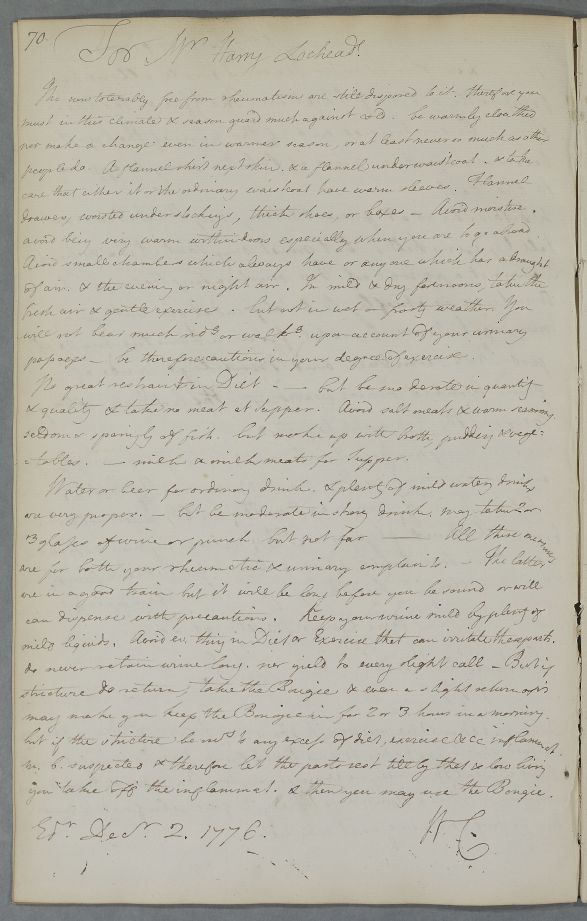 70
For Mr Harry Lochead.
tho now tolerably free from rheumatism are still disposed to it. therefore you
must in this climate & season guard much against cold. be warmly cloathed
nor make a change even in warmer season, or at least never so much as other
people do. A flannel shirt next skin. & a flannel underwaistcoat. & take
care that either it or the ordinary waistcoat have warm sleeves. Flannel
drawers, worsted understockings, thick shoes, or boxes — Avoid moisture.
avoid being very warm within doors especially when you are to go abroad.
Avoid small chambers which always have or any one which has a draught
of air. & the evening or night air. In mild & dry forenoons, take the
fresh air & gentle exercises. but not in wet — frosty weather. You
will not bear much ridg or walkg. upon account of your urinary
passages — be therefore cautious in your degree of exercise.
No great restraint in Diet — but be moderate in quantity
& quality & take no meat at Supper. Avoid salt meats & warm seasoning
seldom & sparingly of fish. but make up with broth, pudding & vege-
-tables. — milk & milk meats for Supper.
Water or beer for ordinary drink. & plenty of mild watery drinks
are very proper. — but be moderate in strong drink, may take 2 or
3 glasses of wine or punch but not far — All these measures
are for both your rheumatic & urinary complaints. — The latter
are in a good train but it will be long before you be sound or will
can dispense with precautions. Keep your urine mild by plenty of
mild liquids. Avoid ev. thing in Diet or Exercise that can irritate these parts.
do never retain urine long. nor yield to every slight call — But if
stricture do return, take the Bougie & even a slight return
may make you keep the Bougie in for 2 or 3 hours in a morning.
but if the stricture be to any excess of diet, exercise &cc inflammat.
m. b. suspected & therefore let the parts rest till by that & low living
you take off the inflammat. & then you may use the Bougie.
Edr. Decr. 2. 1776.
WC